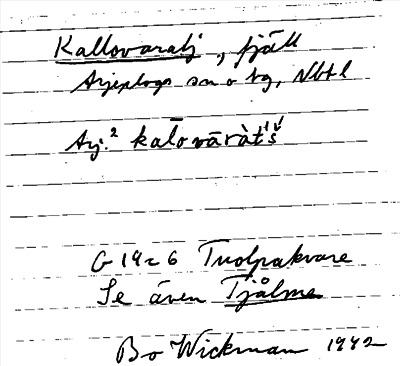 Kallovaratj, fjäll
Arjeplogs sn o tg, Nbtl
Arj.² kalōvāràt́š́
G 19c6 Tuolpakvare
Se även Tjålme
Bo Wickman 1942